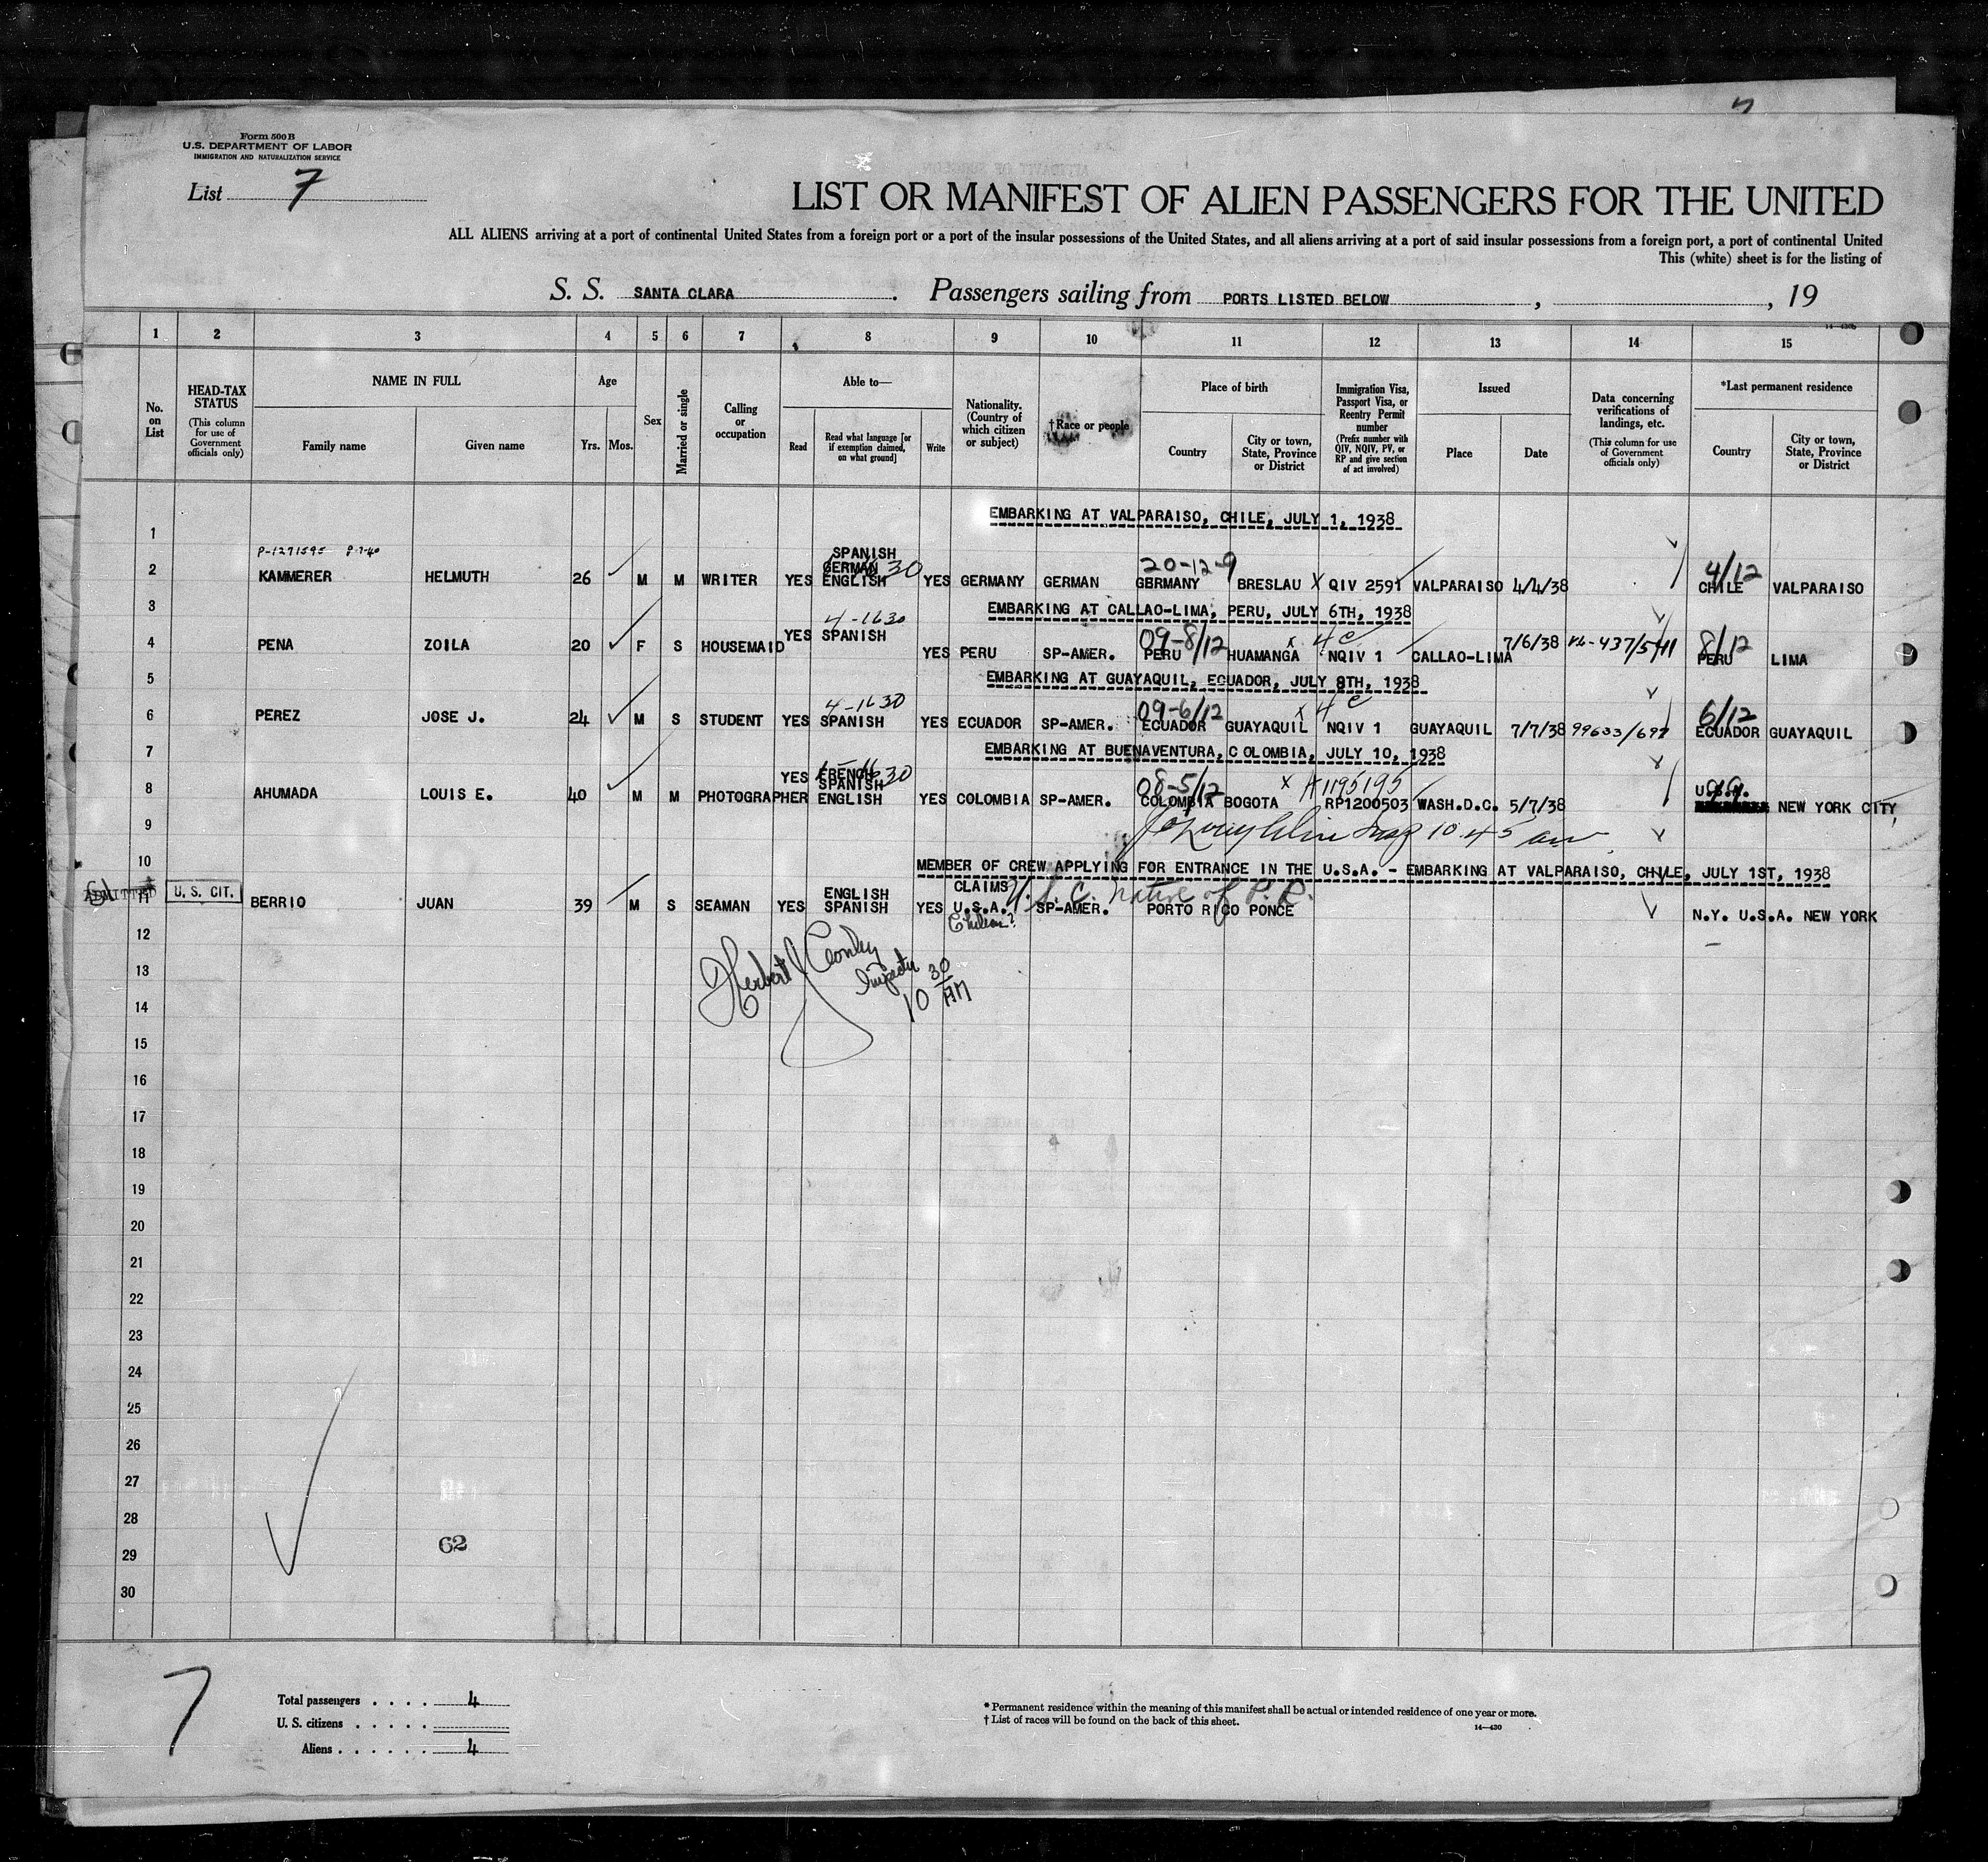 Form 500 B
U.S. DEPARTMENT OF LABOR
IMMIGRATION AND NATURALIZATION SERVICE
List 7
LIST OR MANIFEST OF ALIEN PASSENGERS FOR THE UNITED
ALL ALIENS arriving at a port of continental United States from a foreign port or a port of the insular possessions of the United States, and all aliens arriving at a port of said insular possessions from a foreign port, a port of continental United
This (white) sheet is for the listing of
S. S. SANTA CLARA. Passengers sailing from PORTS LISTED BELOW, , 19
1 2 3 4 5 6 7 8 9 10 11 12 13 14 15
No. on List
HEAD-TAX STATUS
(This column for use of Government officials only)
NAME IN FULL
Family name Given name
Age
Yrs. Mos.
Sex
Married or single
Calling or occupation
Able to—
Read
Read what language [or if exemption claimed, on what ground]
Write
Nationality. (Country of which citizen or subject)
†Race or people
Place of birth
Country
City or town, State, Province or District
Immigration Visa, Passport Visa, or Reentry Permit number
(Prefix number with QIV, NQIV, PV, or RP and give section of act involved)
Issued
Place Date
Data concerning verifications of landings, etc.
(This column for use of Government officials only)
*Last permanent residence
Country
City or town, State, Province or District
EMBARKING AT VALPARAISO, CHILE, JULY 1, 1938
1
P-1271595
SPANISH
GERMAN 30
20-12-9
4/12
2 KAMMERER HELMUTH 26 M M WRITER YES ENGLISH YES GERMANY GERMAN GERMANY BRESLAU X QIV 2591 VALPARAISO 4/4/38 CHILE VALPARAISO
3 EMBARKING AT CALLAO-LIMA, PERU, JULY 6TH, 1938
4-1630
09-8/12 x 4c
8/12
4 PENA ZOILA 20 F S HOUSEMAID YES SPANISH YES PERU SP-AMER. PERU HUAMANGA NQIV 1 CALLAO-LIMA 7/6/38 PERU LIMA
5 EMBARKING AT GUAYAQUIL, ECUADOR, JULY 8TH, 1938
4-1630
09-6/12 x 4c
6/12
6 PEREZ JOSE J. 24 M S STUDENT YES SPANISH YES ECUADOR SP-AMER. ECUADOR GUAYAQUIL NQIV 1 GUAYAQUIL 7/7/38 99633/697 ECUADOR GUAYAQUIL
7 EMBARKING AT BUENAVENTURA, COLOMBIA, JULY 10, 1938
FRENCH 30
SPANISH
08-5/12 x A1195195
U.S.A.
8 AHUMADA LOUIS E. 40 M M PHOTOGRAPHER YES ENGLISH YES COLOMBIA SP-AMER. COLOMBIA BOGOTA RP1200503 WASH.D.C. 5/7/38 NEW YORK CITY,
9 10 45 am
10 MEMBER OF CREW APPLYING FOR ENTRANCE IN THE U.S.A. - EMBARKING AT VALPARAISO, CHILE, JULY 1ST, 1938
ADMITTED U. S. CIT.
ENGLISH CLAIMS U.S.C. Native of P.R.
11 BERRIO JUAN 39 M S SEAMAN YES SPANISH YES U.S.A. SP-AMER. PORTO RICO PONCE N.Y. U.S.A. NEW YORK
Chilean?
12
Herbert J Conley
Inspector
13
10 30 AM
14
15
16
17
18
19
20
21
22
23
24
25
26
27
28
62
29
30
7
Total passengers . . . . 4
U. S. citizens . . . . .
Aliens . . . . . . 4
* Permanent residence within the meaning of this manifest shall be actual or intended residence of one year or more.
† List of races will be found on the back of this sheet.
14—430